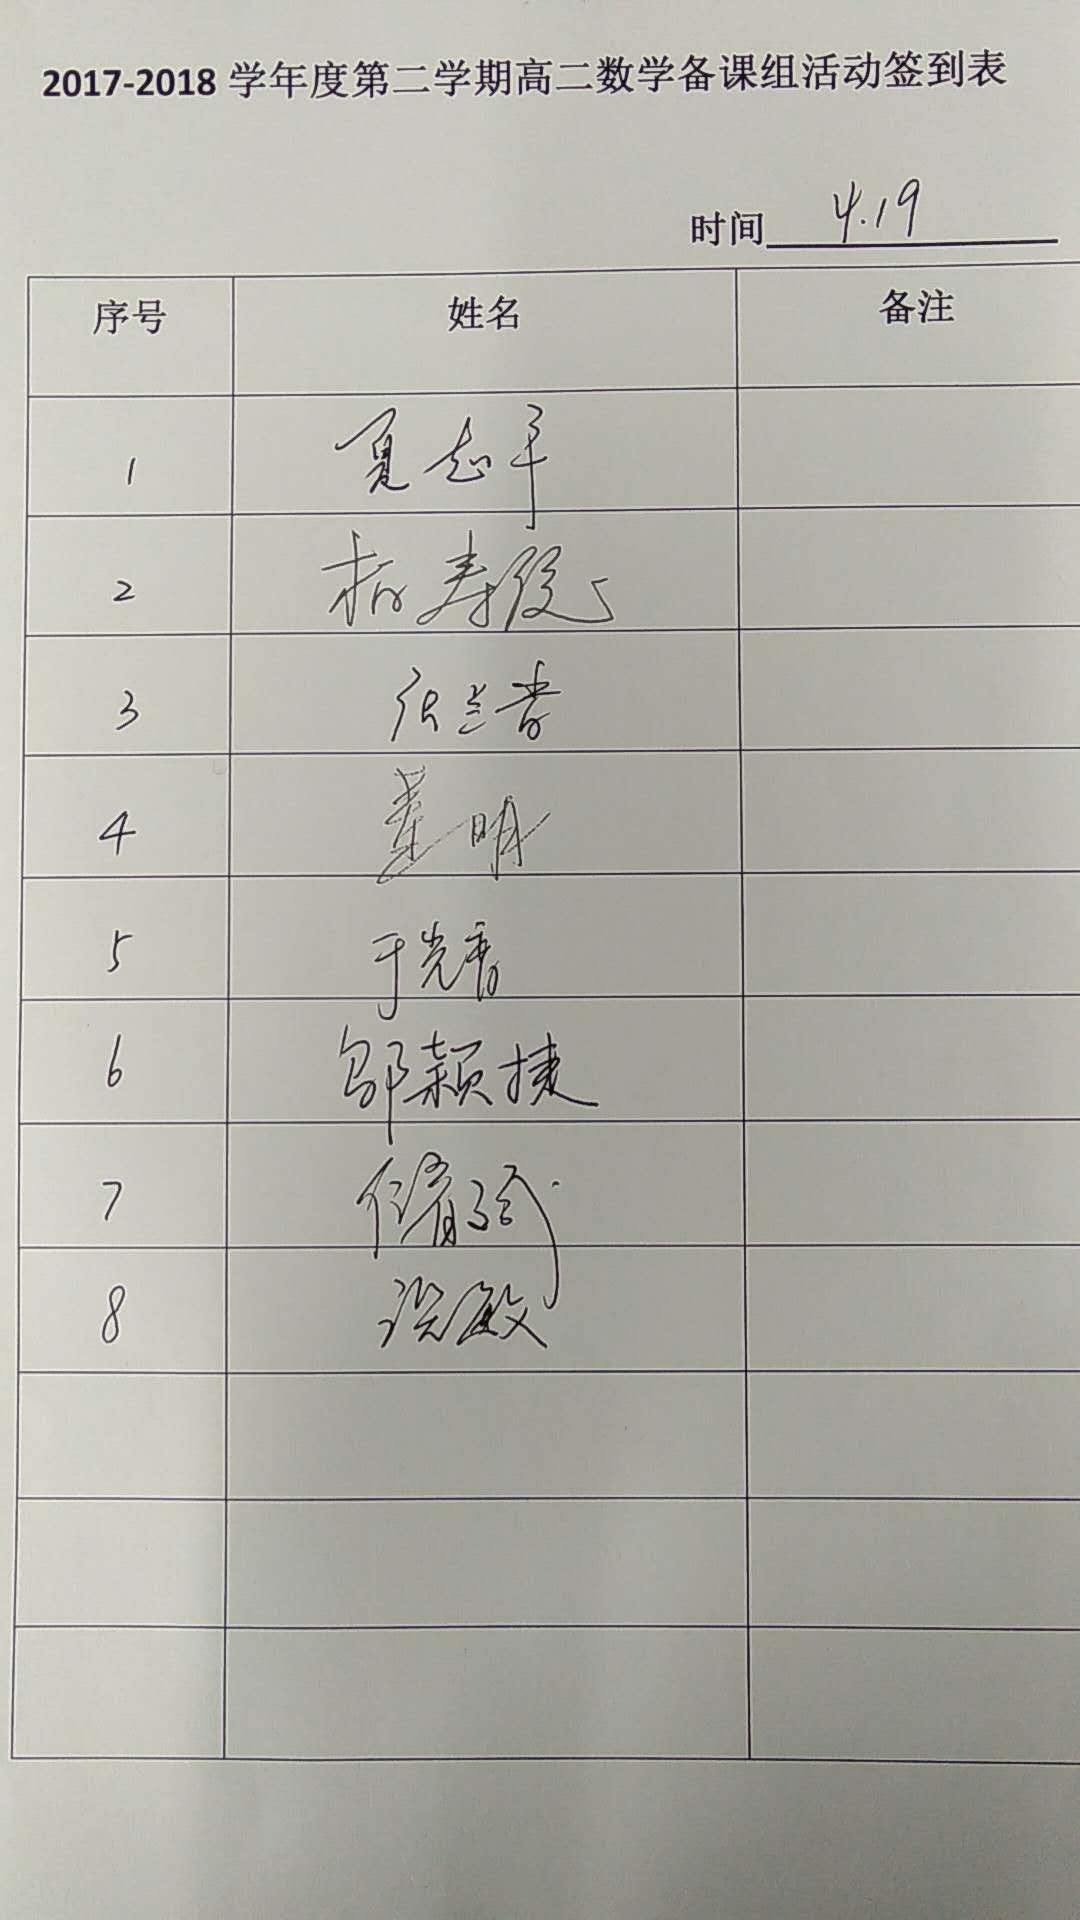 2017-2018 学年度第二学期高二数学备课组活动签到表
时间 4.19
序号 姓名 备注
1 夏志平
2 寿
3
4 董明
5 于光香
6 邹颖捷
7
8 敏